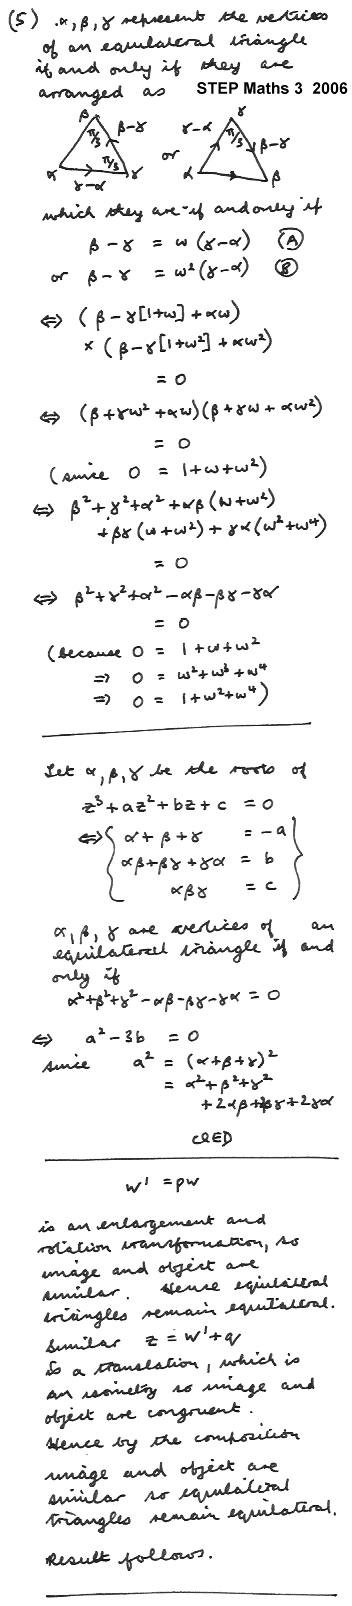 (5) α, β, γ represent the vertices
of an equilateral triangle
if and only if they are
arranged as STEP Maths 3 2006
β γ
π/3 β-γ γ-α π/3 β-γ
π/3 or
α γ α β
γ-α
which they are if and only if
β - γ = ω (γ-α) (A)
or β - γ = ω² (γ-α) (B)
⇔ (β - γ[1+ω] + αω)
× (β - γ[1+ω²] + αω²)
= 0
⇔ (β+γω²+αω)(β+γω+αω²)
= 0
(since 0 = 1+ω+ω²)
⇔ β²+γ²+α²+αβ(ω+ω²)
+βγ(ω+ω²)+γα(ω²+ω⁴)
= 0
⇔ β²+γ²+α²-αβ-βγ-γα
= 0
(because 0 = 1+ω+ω²
⇒ 0 = ω²+ω³+ω⁴
⇒ 0 = 1+ω²+ω⁴)
Let α, β, γ be the roots of
z³+az²+bz+c = 0
⇔ { α+β+γ = -a
αβ+βγ+γα = b
αβγ = c }
α, β, γ are vertices of an
equilateral triangle if and
only if
α²+β²+γ²-αβ-βγ-γα = 0
⇔ a²-3b = 0
since a² = (α+β+γ)²
= α²+β²+γ²
+2αβ+2βγ+2γα
QED
w' = pw
is an enlargement and
rotation transformation, so
image and object are
similar. Hence equilateral
triangles remain equilateral.
Similar z = w'+q
is a translation, which is
an isometry so image and
object are congruent.
Hence by the composition
image and object are
similar so equilateral
triangles remain equilateral.
Result follows.